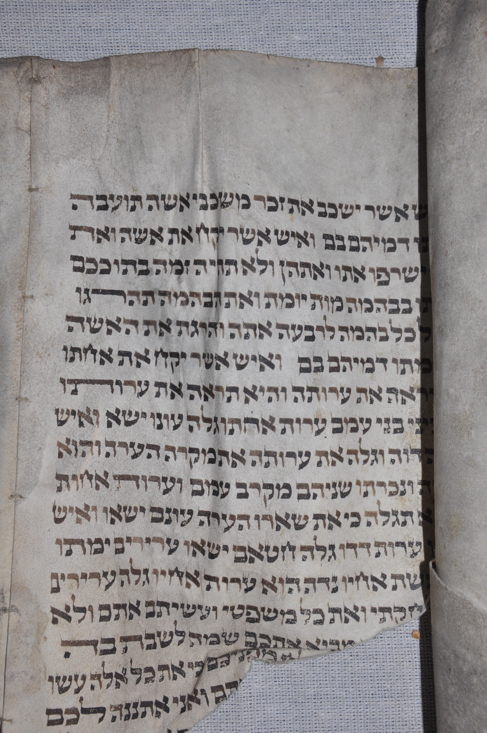 אשר ישכב את זכר משכבי אשה תועבה
דמיהם בם ואיש אשר יקח את אשה ואת
ישרפו אתו ואתהן ולא תהיה זמה בתוככם
בבהמה מות יומת ואת הבהמה תהרגו
לכל בהמה לרבעה אתה והרגת את האשה
דמיהם בם ואיש אשר יקח את אחתו
וראה את ערותה והיא תראה את ערותו
בני עמם ערות אחתו גלה עונו ישא ואיש
דוה וגלה את ערותה את מקרה הערה והוא
ונכרתו שניהם מקרב עמם וערות אחות
תגלה כי את שארו הערה עונם ישאו ואיש
ערות דדו גלה חטאם ישאו ערירים ימתו
אחיו נדה הוא ערות אחיו גלה ערירים
חקתי ואת כל משפטי ועשיתם אתם ולא
מביא אתכם שמה לשבת בה
כי את כל אלה עשו
ואני אתננה לכם